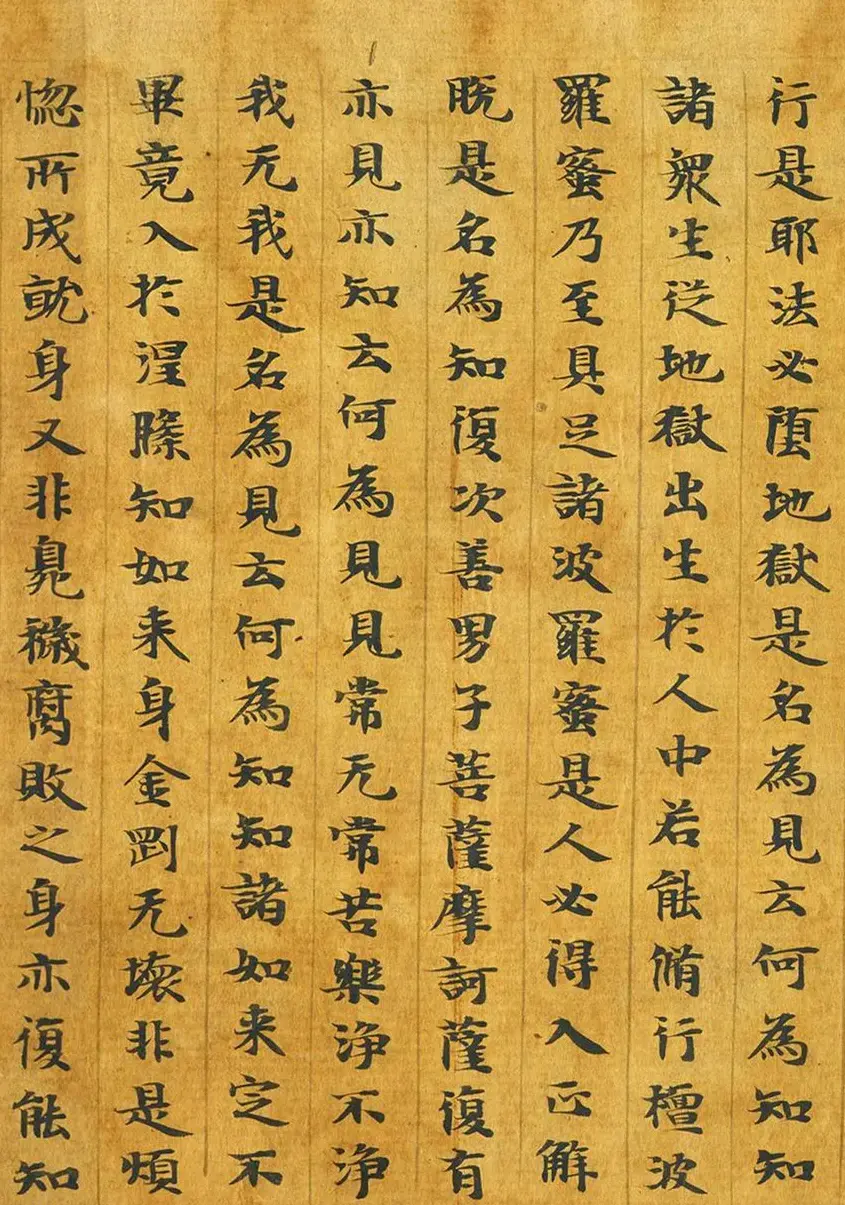 行是耶法必堕地獄是名為見云何為知知
諸衆生従地獄出生於人中若能脩行檀波
羅蜜乃至具足諸波羅蜜是人必得入正解
既是名為知復次善男子菩薩摩訶薩復有
亦見亦知云何為見見常无常苦樂浄不浄
我无我是名為見云何為知知諸如来定不
畢竟入於涅槃知如来身金剛无壞非是煩
惚所成就身又非臰穢腐敗之身亦復能知